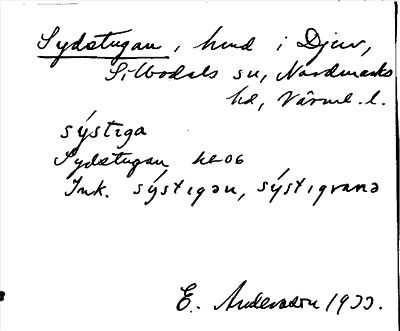 Sydstugan, hmd i Djuv,
Sillbodals sn, Nordmarks
hd, Värml. l.
sýstiga
Sydstugan
Ink. sýstıgən, sýstıgvana
E. Andersson 1933.